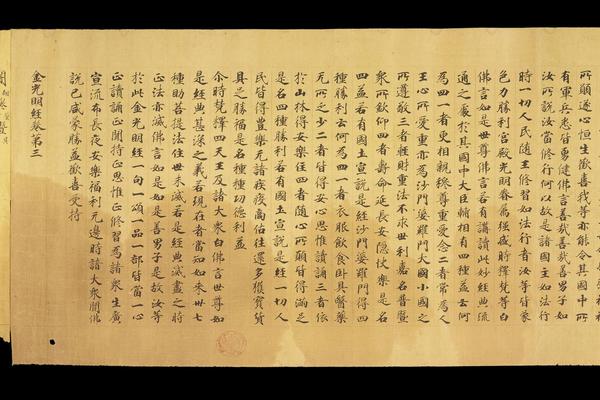 所願遂心恒生歡喜我等亦能令其國中所
有軍兵悉皆勇健佛言善哉善哉善男子如
汝所說汝當修行何以故是諸國主如法行
時一切人民隨王修習如法行者汝等皆蒙
色力勝利宮殿光明眷屬強盛時釋梵等白
佛言如是世尊佛言若有講讀此妙經典流
通之處於其國中大臣輔相有四種益云何
為四一者更相親穆尊重愛念二者常為人
王心所愛重亦為沙門婆羅門大國小國之
所遵敬三者輕財重法不求世利嘉名普暨
衆所欽仰四者壽命延長安隱快樂是名
四益若有國土宣說是經沙門婆羅門得四
種勝利云何為四一者衣服飲食臥具醫藥
无所乏少二者皆得安心思惟讀誦三者依
於山林得安樂住四者隨心所願皆得滿足
是名四種勝利若有國土宣說是經一切人
民皆得豐樂无諸疾疫商估往還多獲寶貨
具足勝福是名種種功德利益
尒時梵釋四天王及諸大衆白佛言世尊如
是經典甚深之義若現在者當知如來卅七
種助菩提法住世未滅若是經典滅盡之時
正法亦滅佛言如是如是善男子是故汝等
於此金光明經一句一頌一品一部皆當一心
正讀誦正聞持正思惟正修習為諸衆生廣
宣流布長夜安樂福利无邊時諸大衆聞佛
說已咸蒙勝益歡喜受持
金光明經卷第三